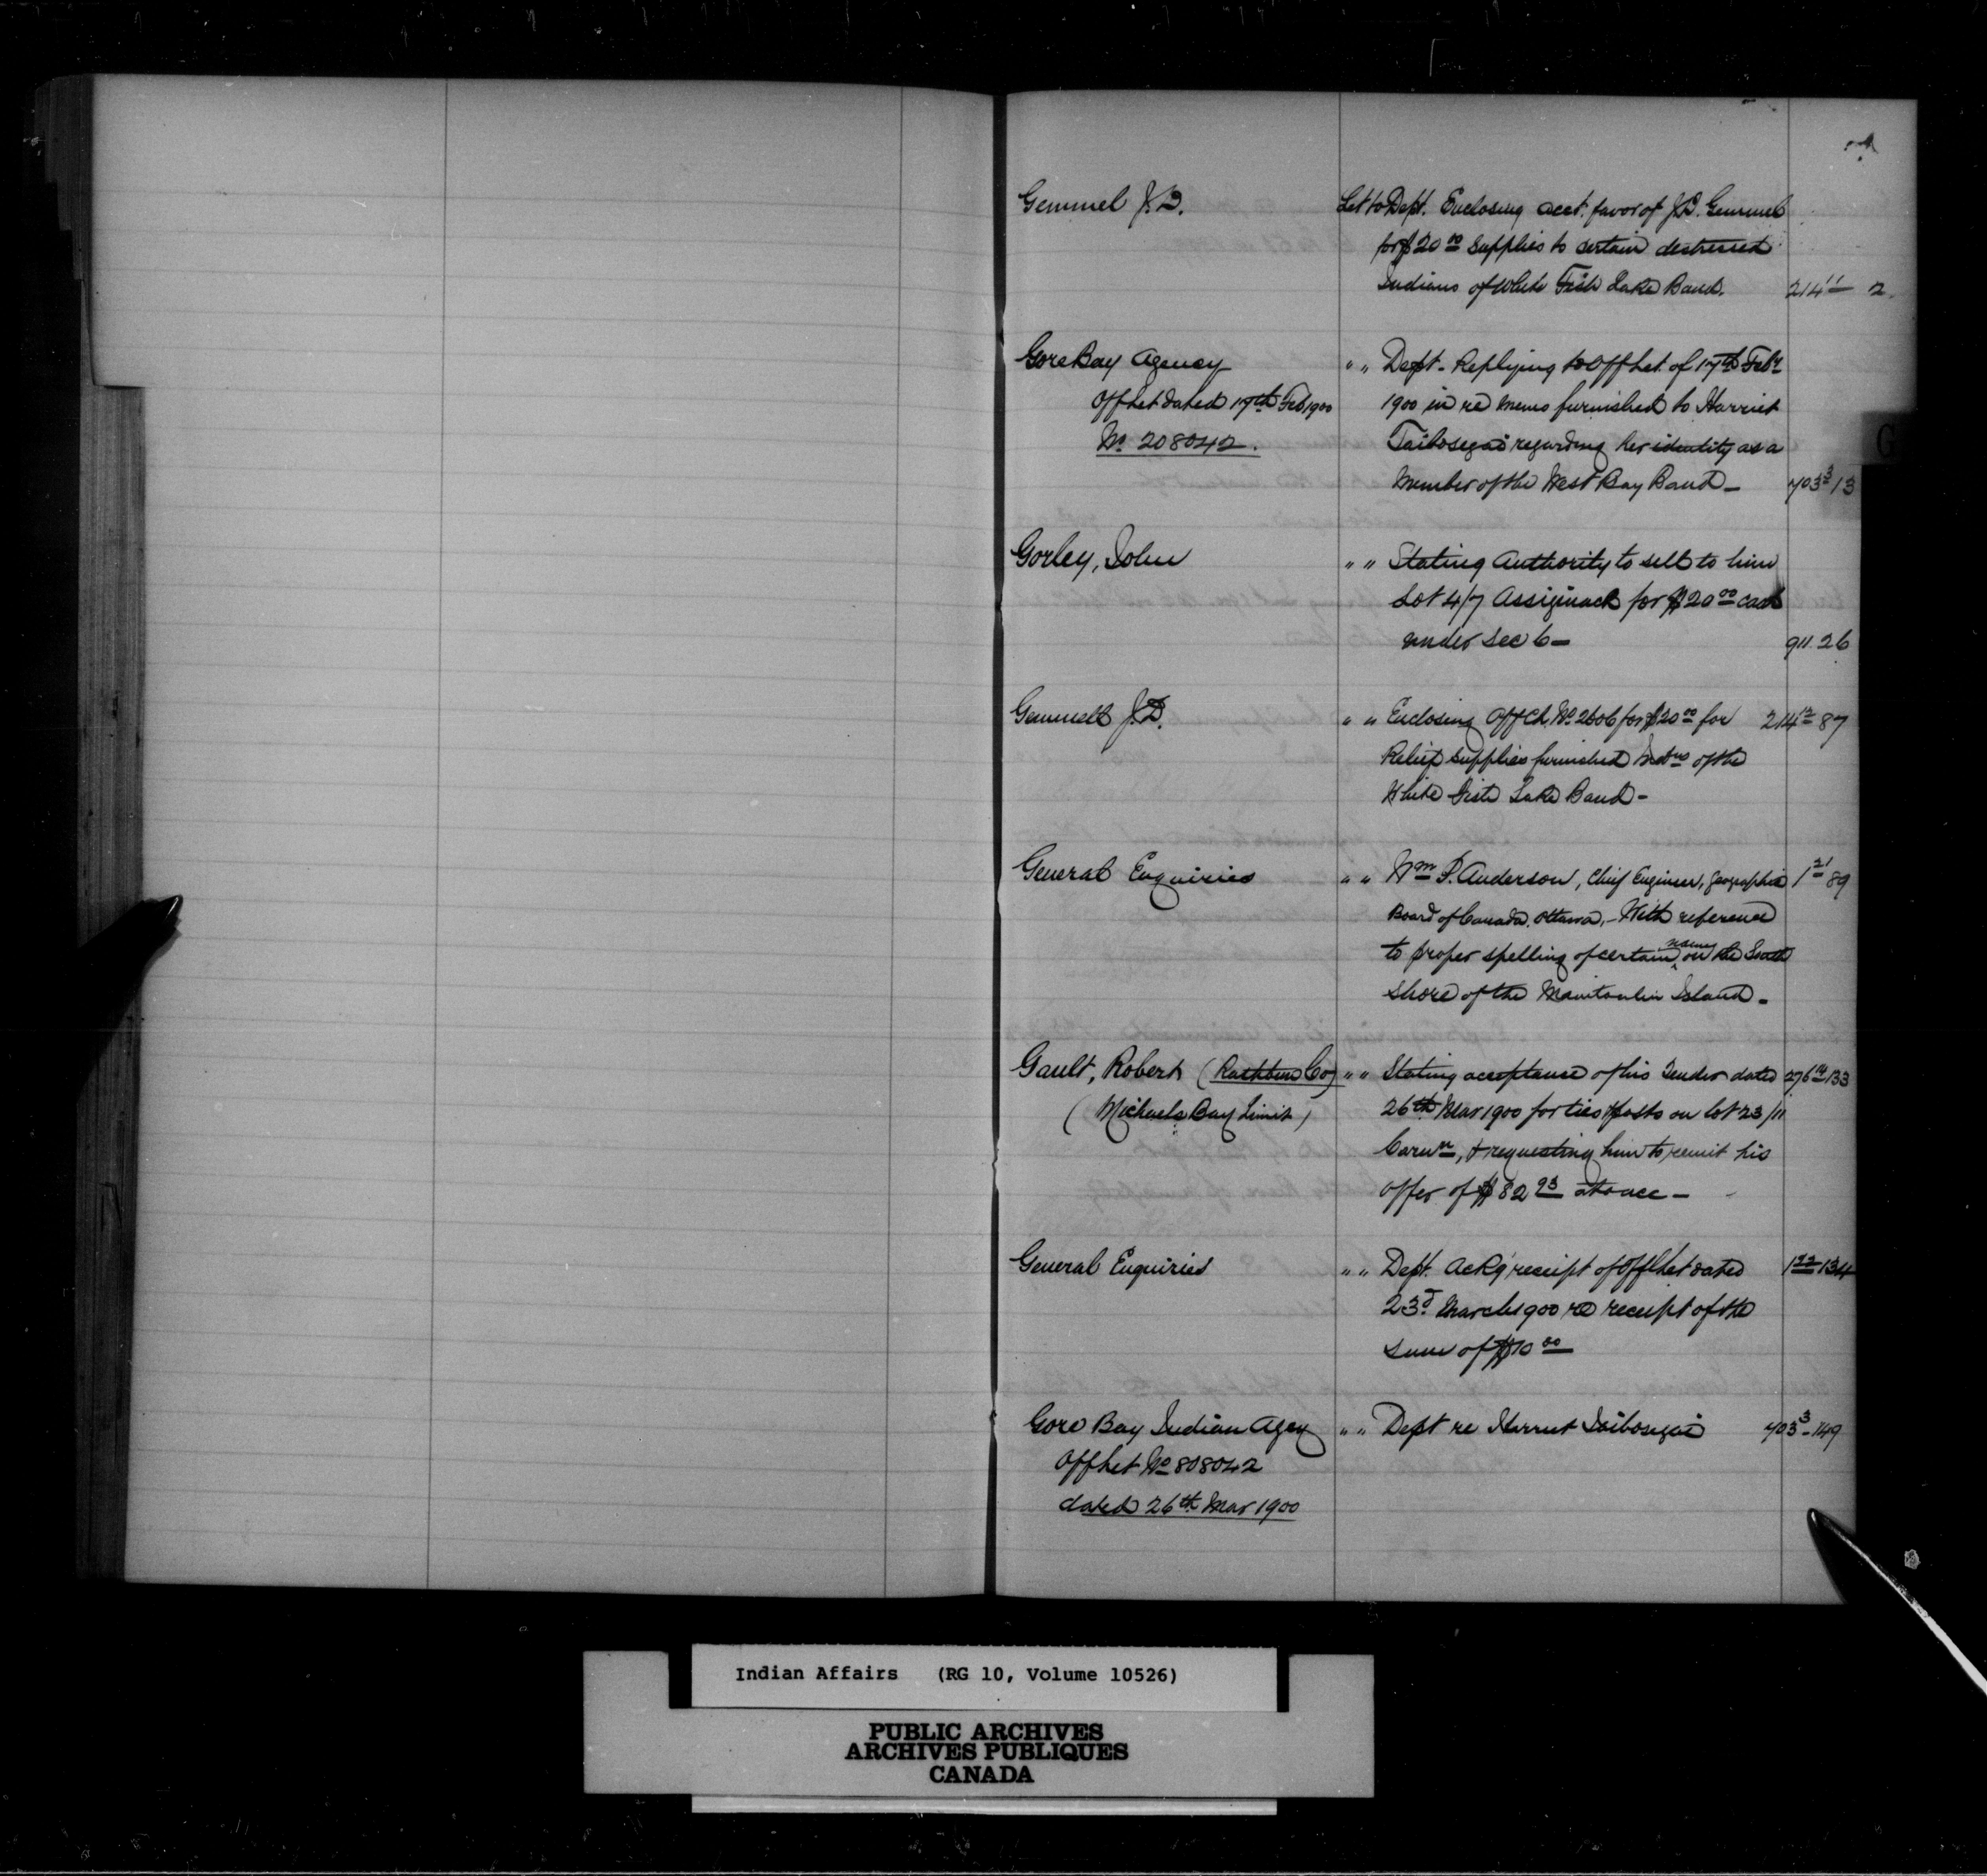 Gemmel J.D. Let to Dept. Enclosing acct. favor of J.D. Gemmel
for $20 00 supplies to certain destressed
Indians of White Fish Lake Band. 214 11 2.
Gore Bay Agency " " Dept. Replying to Off Let. of 17th Feby
Off Let dated 17th Feb 1900 1900 in re memo furnished to Harriet
No 208042. Taibosegai regarding her identity as a
Member of the West Bay Band - 703 3 13
G
Gorley, John " " Stating Authority to sell to him
Lot 4/7 Assiginack for $20 00 cash
under Sec 6 - 911. 26
Gemmell J.D. " " Enclosing Off Ch. No 2606 for $20 00 for 214 12 87
Relief supplies furnished Indns of the
White Fish Lake Band -
General Enquiries " " Wm P. Anderson, Chief Engineer, Geographic 1 21 89
Board of Canada, Ottawa, - With reference
to proper spelling of certain names on the South
Shore of the Manitoulin Island -
Gault, Robert (Rathbun Co) " " Stating acceptance of his Tender dated 276 14 133
(Michaels Bay Limit) 26th Mar 1900 for ties & posts on lot 23/11
Carnn, & requesting him to remit his
offer of $82 93 at once -
General Enquiries " " Dept. Ackg receipt of Off Let dated 1 22 134
23d March 1900 re receipt of the
sum of $10 00
Gore Bay Indian Agcy " " Dept re Harriet Taibosegai 703 3 - 149
Off Let No 808042
dated 26th Mar 1900
Indian Affairs (RG 10, Volume 10526)
PUBLIC ARCHIVES
ARCHIVES PUBLIQUES
CANADA